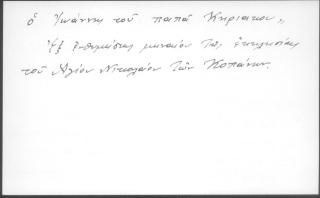 ὁ Ἰωάννης τοῦ παπᾶ Κυριακοῦ,,
Ἐξ ἐνθυμήσεως μηναίου τῆς ἐκκλησίας
τοῦ Ἁγίου Νικολάου τῶν Κοπάνων.